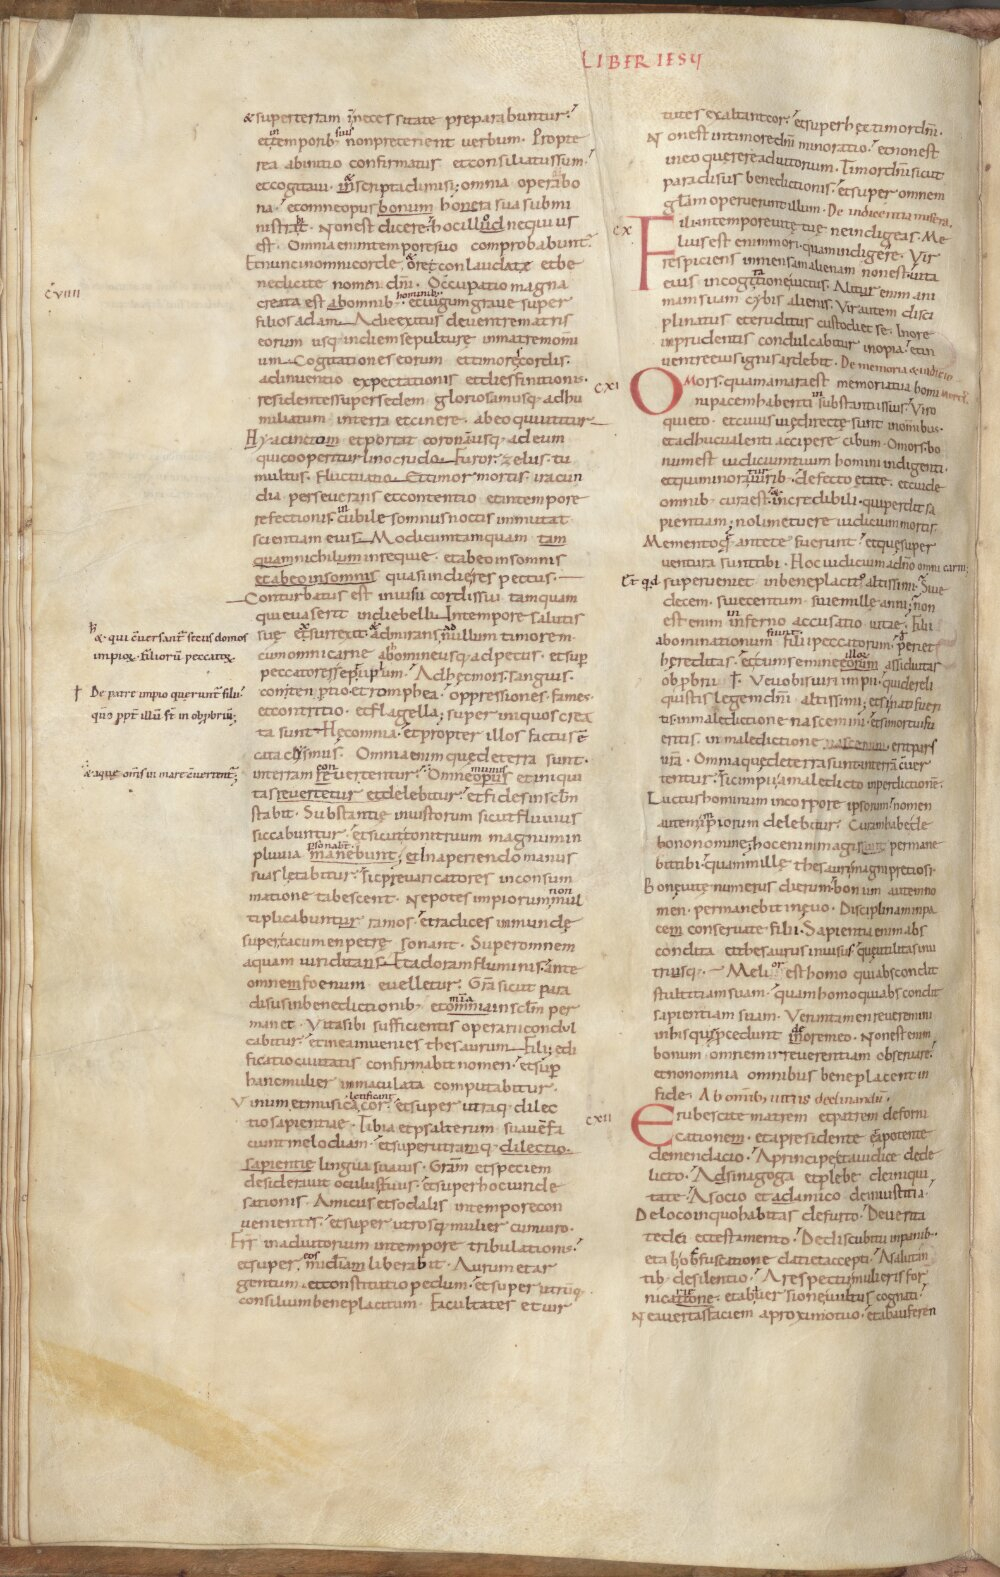 LIBER IESU
& super terram in necessitate preparabuntur.
et in temporib; suis non preterient uerbum. Propte
rea ab initio confirmatus et consiliatus sum.
et cogitaui. & scripta dimisi; omnia opera bo
na. et omne opus bonum hora sua submi
nistrat. Non est dicere. hoc illud nequius
est. Omnia enim tempore suo comprobabunt.
Et nunc in omni corde & ore conlaudate et be
nedicite nomen dni. Occupatio magna
creata est omnib; hominib; et iugum graue super
filios adam. A die exitus de uentre matris
eorum usq; in diem sepulture in matrem omni
um. Cogitationes eorum et timores cordis.
adinuentio expectationis et dies finitionis.
residente super sedem gloriosam usq; ad hu
miliatum in terra et cinere. ab eo qui utitur
hyacintom et portat coronam usq; ad eum
qui cooperitur lino crudo. Furor. zelus. tu
multus. fluctuatio. Et timor mortis. iracun
dia perseuerans et contentio et in tempore
refectionis. in cubile somnus noctis immutat
scientiam eius. Modicum tamquam tam
quam nichilum in requie. et ab eo in somnis
et ab eo in somnis quasi in die respectus.
Conturbatus est in uisu cordis sui tamquam
qui euaserit in die belli. In tempore salutis
sue exsurrexit. & admirans ad nullum timorem.
cum omni carne ab homine usq; ad pecus. et sup
peccatores septuplum. Ad hec mors. sanguis.
contentio et romphea. oppressiones. fames.
et contritio. et flagella; super iniquos crea
ta sunt hec omnia. et propter illos factus e
cataclismus. Omnia enim que de terra sunt.
in terram conuertentur. Omne munus et iniqui
tas reuertetur et delebitur. et fides in sclm
stabit. Substantie iniustorum sicut fluuius
siccabuntur. et sicut tonitruum magnum in
pluuia personabt. manebunt; et In aperiendo manus
suas letabitur. sic preuaricatores in consum
matione tabescent. Nepotes impiorum non mul
tiplicabuntur ramos. et radices inmunde
super cacumen petre sonant. Super omnem
aquam uiriditas. Et ad oram fluminis. ante
omnem foenum euelletur. Gra sicut para
disus in benedictionib; et mia in sclm per
manet. Vita sibi sufficientis operarii condul
cabitur. et in ea inuenies thesaurum. Filii edi
ficatio ciuitatis confirmabit nomen. et sup
hanc mulier immaculata computabitur.
Vinum et musica letificant cor. et super utraq; dilec
tio sapientiae. Tibia et psalterium suaue fa
ciunt melodiam. et super utramq; dilectio
sapientie lingua suauis. Gram et speciem
desiderauit oculus tuus. et super hoc uiride
sationis. Amicus et sodalis in tempore con
uenientes. et super utrosq; mulier cum uiro.
Frs in adiutorium in tempore tribulationis.
et super eos misericdiam liberabit. Aurum et ar
gentum. et constitutio pedum. et super utrumq;
consilium beneplacitum. Facultates et uir
CVIIII
& qui cuersant secus domos
impior. filioru peccator.
† De patre impio queruntr filii
qm ppt illu st in obpbriu;
& aque oms in mare cuertentr;
tutes exaltant cor. et super hec timor dni.
Non est in timore dni minoratio. et non est
in eo querere adiutorium. Timor dni sicut
paradisus benedictionis. et super omnem
glam operuerunt illum. De indicentia misera.
CX
Fili in tempore uite tue ne indigeas. Me
lius est enim mori. quam indigere. Vir
respiciens in mensam alienam non est uita
eius in cogitatione uictus. Alitur enim ani
mam suam cybis alienis. Vir autem disci
plinatus et eruditus custodiet se. In ore
imprudentis condulcabitur inopia. et in
uentre eius ignis ardebit. De memoria & iudicio mortis.
CXI
O Mors. quam amara est memoria tua homi
ni pacem habenti in substantiis suis. Viro
quieto. et cuius uie directe sunt in omnibus.
et adhuc ualenti accipere cibum. O mors. bo
num est iudicium tuum homini indigenti.
et qui minoratur uirib; defecto etate. et cui de
omnib; cura est. & incredibili. qui perdit sa
pientiam; noli metuere iudicium mortis.
Memento que ante te fuerunt. et que super
uentura sunt tibi. Hoc iudicium a dno omni carni;
Et qd superueniet in beneplacito altissimi. Siue
decem. siue centum. siue mille anni; non
est enim in inferno accusatio uitae. Filii
abominationum fiunt filii peccatorum. periet
hereditas. et cum semine illor eorum assiduitas
obprobrii. † Ve uobis uiri impii. qui dereli
quistis legem dni altissimi; et si nati fueri
tis. in maledictione nascemini. et si mortui fu
eritis. in maledictione nascemini. erit pars
ura. Omnia que de terra sunt in terra cuer
tentur. sic impii a maledicto in perdictione.
Luctus hominum in corpore ipsorum. nomen
autem impiorum delebitur. Curam habe de
bono nomine; hoc enim magis permane
bit tibi. quam mille thesauri magni pretiosi.
Bone uite numerus dierum. bonum autem no
men. permanebit in euo. Disciplinam in pa
cem conseruate filii. Sapientia enim abs
condita et thesaurus inuisus. que utilitas in u
trisq;. Melior est homo qui abscondit
stultitiam suam. quam homo qui abscondit
sapientiam suam. Verumtamen reueremini
in his que pcedunt de ore meo. Non est enim
bonum omnem irreuerentiam obseruare.
et non omnia omnibus beneplacent in
fide. Ab omib; uitiis declinandu.
CXII
Erubescite matrem et patrem de forni
cationem. et a presidente & a potente
de mendacio. A principe et a iudice de de
licto. A dsinagoga et plebe de iniqui
tate. A socio et ad amico de iniustitia.
De loco in quo habitas de furto. De uerita
te dei et testamento. De discubitu in panib;
et ab obfuscatione dati et accepti. A salutan
tib; de silentio. A respectu mulieris for
nicarie. et ab auersione uultus cognati.
Ne auertas faciem a proximo tuo. et ab auferen